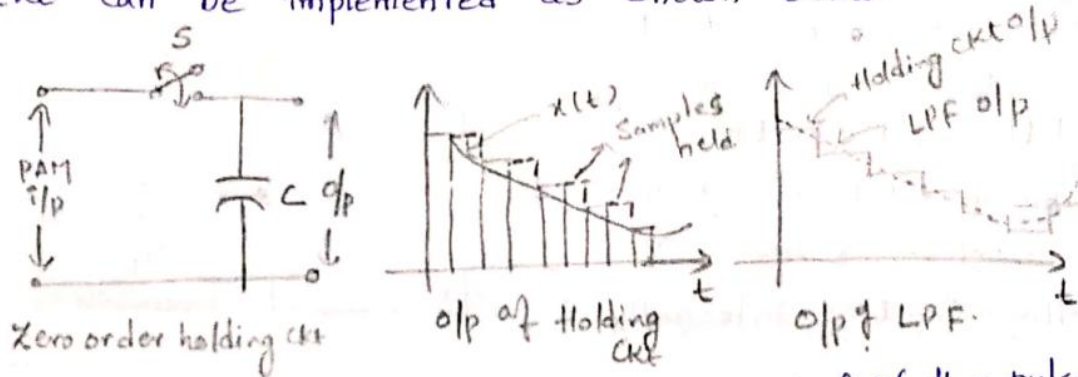 can be implemented as shown
S
PAM
i/p
C
o/p
Zero order holding ckt
x(t)
Samples
held
t
o/p of Holding
ckt
Holding ckt o/p
LPF o/p
t
o/p of LPF.
of the pulse